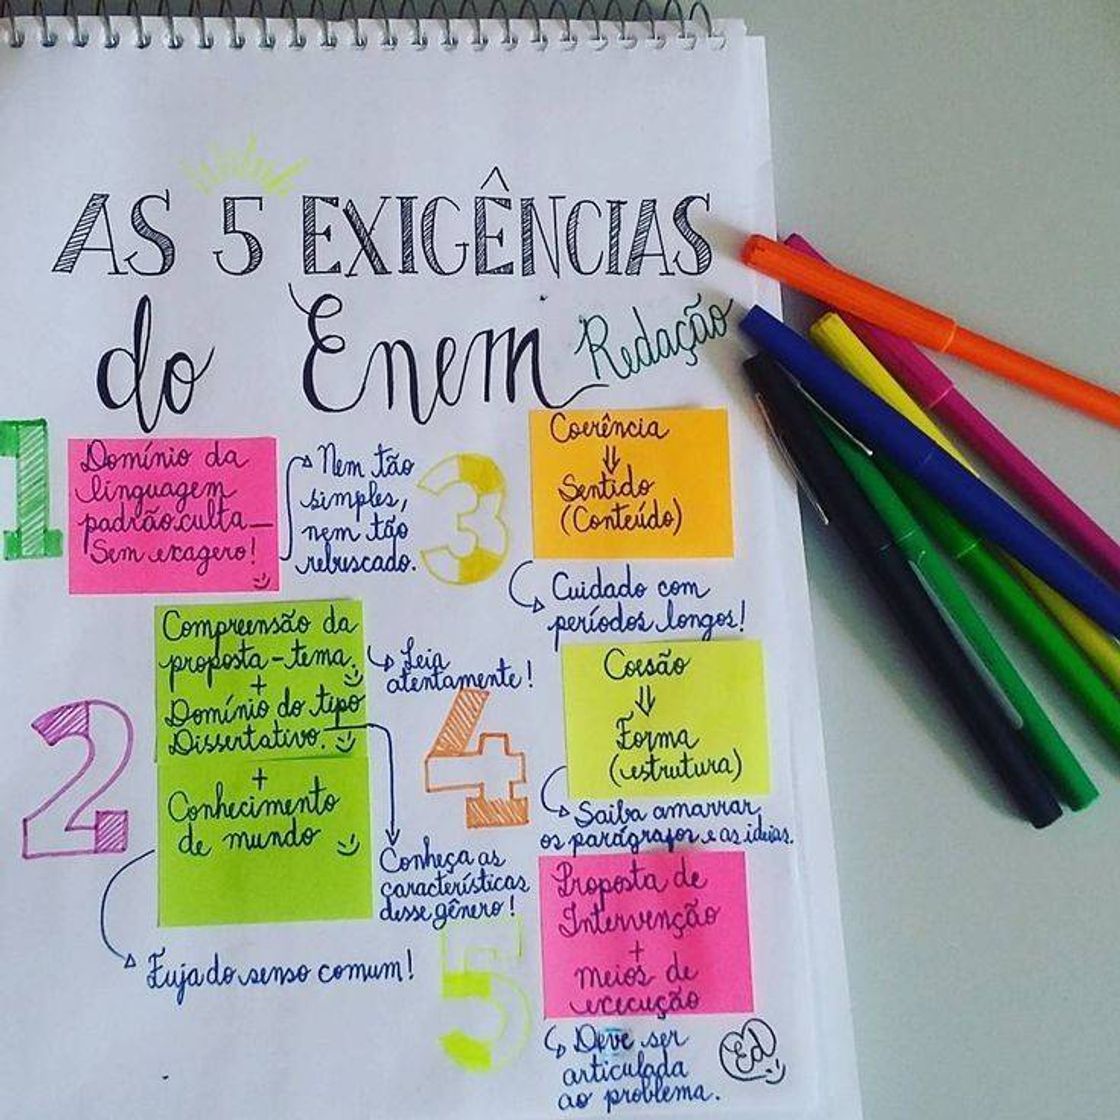 AS 5 EXIGÊNCIAS
do Enem Redação
1
Domínio da
linguagem
padrão culta_
Sem exagero!
Nem tão
simples,
nem tão
rebuscado.
2
Compreensão da
proposta-tema.
+
Domínio do tipo
Dissertativo.
+
Conhecimento
de mundo
Leia
atentamente!
Conheça as
características
desse gênero!
Fuja do senso comum!
3
Coerência
⇓
Sentido
(Conteúdo)
Cuidado com
períodos longos!
4
Coesão
⇓
Forma
(estrutura)
Saiba amarrar
os parágrafos e as ideias.
5
Proposta de
Intervenção
+
meios de
execução
Deve ser
articulada
ao problema.
Ed